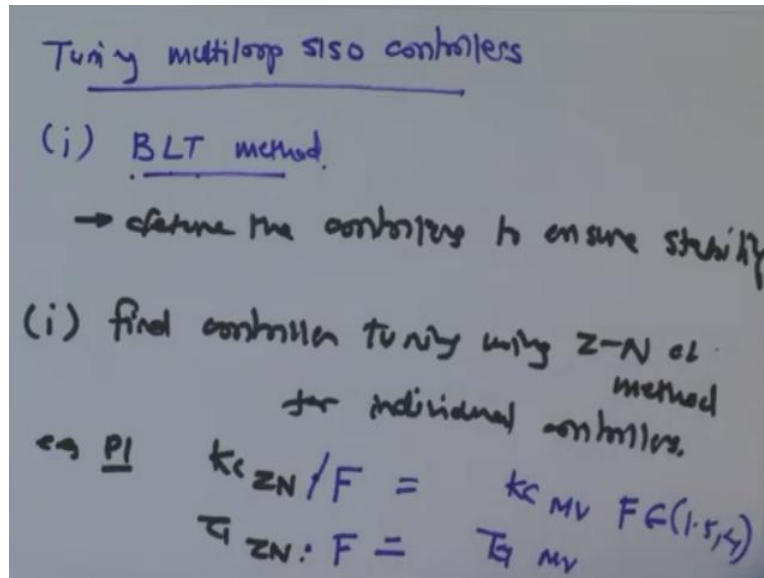 Tuning multiloop SISO controllers
(i) BLT method.
→ detune the controllers to ensure stability
(i) find controller tuning using Z-N CL
method
for individual controllers.
eg PI Kc ZN / F = Kc MV F∈(1.5,4)
τI ZN . F = τI MV